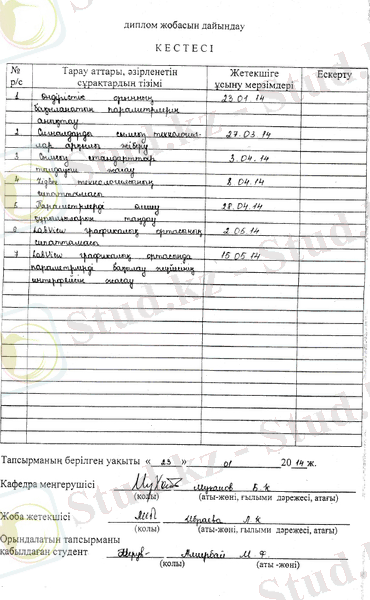 диплом жобасын дайындау
КЕСТЕСІ
№ р/с
Тарау аттары, әзірленетін сұрақтардың тізімі
Жетекшіге ұсыну мерзімдері
Ескерту
1 Өндірістік орынның 23.01.14
бақыланатын параметрлерін
анықтау
2 Сигналдарды сымсыз технология- 27.03.14
лар арқылы жіберу
3 Сымсыз стандарттар 3.04.14
талдауын жасау
4 Zigbee технологиясының 8.04.14
сипаттамасы
5 Параметрлерді өлшеу 28.04.14
құрылғыларын таңдау
6 LabView графикалық ортасының 2.05.14
сипаттамасы
7 LabView графикалық ортасында 15.05.14
параметрлерді бақылау жүйесінің
интерфейсін жасау
Тапсырманың берілген уақыты « 23 » 01 2014 ж.
Кафедра меңгерушісі Б.К
(қолы) (аты-жөні, ғылыми дәрежесі, атағы)
Жоба жетекшісі Л.К
(қолы) (аты-жөні, ғылыми дәрежесі, атағы)
Орындалатын тапсырманы
қабылдаған студент М.Ф.
(қолы) (аты -жөні)
Stud.kz - Stud.kz